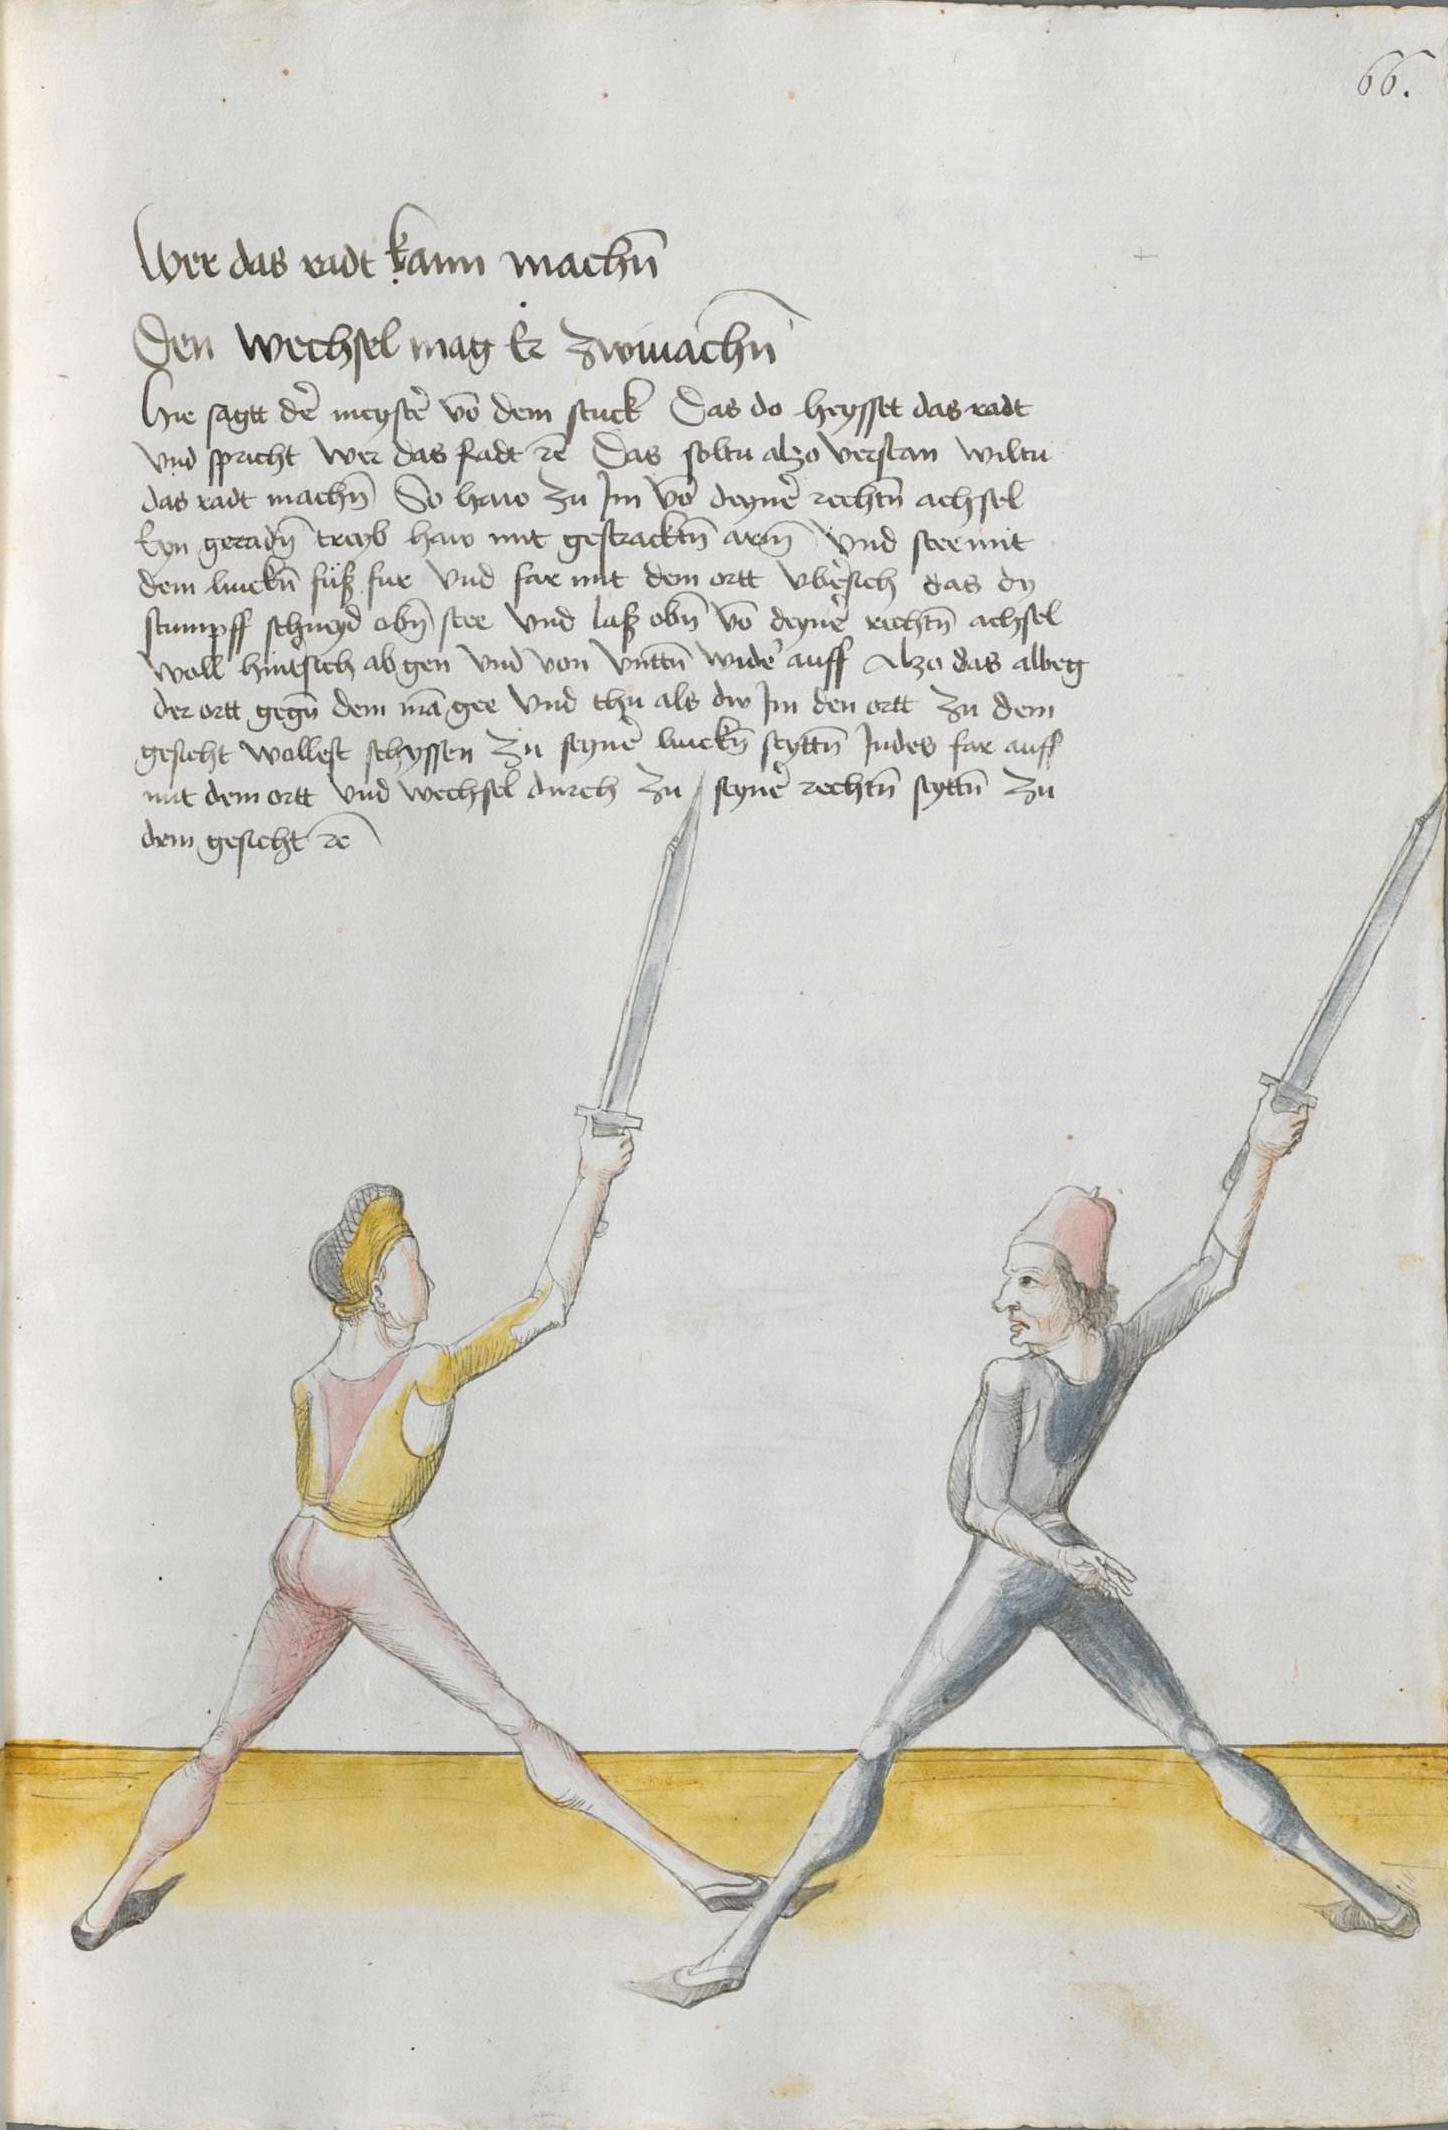 66.
Wer das radt kann machn̄
Den wechsel mag Er zwmachn̄
Hie sagtt der̄ meyster̄ vō dem stuck Das do heysset das radt
vnd spricht wer das Radt ꝛc̄ Das soltu alzo verstan wiltu
das radt machn̄ So haw zu Im vō deyner̄ rechtn̄ achsel
Eyn geradn̄ treyb haw mit gestracktn̄ arm̄ vnd stee mit
dem linckn̄ fuß fur vnd far mit dem ortt vber̄sich das dy
stumpff schneyd obn̄ stee vnd laß obn̄ vō deyner̄ rechtn̄ achsel
woll hinter̄sich ab gen vnd von vnttn̄ wider̄ auff Alzo das albeg
der ortt gegn̄ dem mā gee vnd thu als dw Im den ortt zu dem
gesicht wollest schyssen zu seyner̄ linckn̄ seyttn̄ Indes far auff
mit dem ortt vnd wechsel durch zu seyner̄ rechtn̄ seyttn̄ zu
dem gesicht ꝛc̄